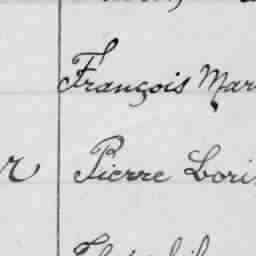 François Mar
Pierre Lori